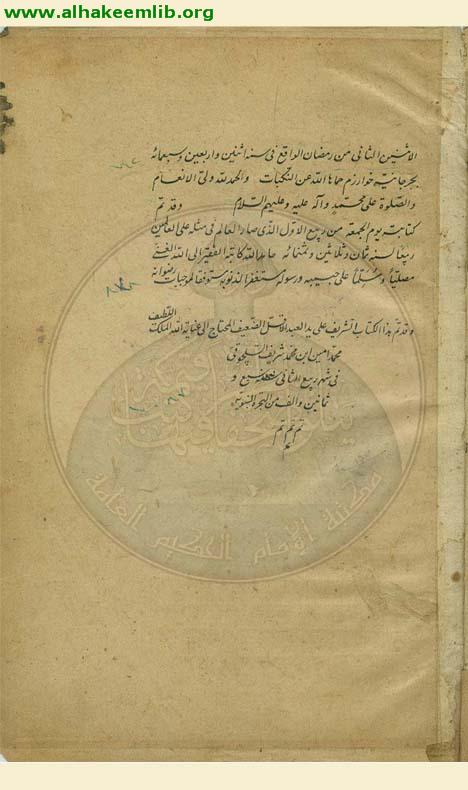 www.alhakeemlib.org
الاثنين الثانى من رمضان الواقع فى سنة اثنين واربعين وسبعمائه
بجرجانية خوارزم حماها الله عن النكبات والحمد لله ولى الانعام
والصلوة على محمد وآله عليه وعليهم السلام وقد تم
كتابته يوم الجمعة من ربيع الاول الذى صار العالم فى مثله على العالمين
ربيعا لسنة ثمان وثلاثين وثمنمائة حامدا لله كاتبه الفقير الى الله الغنى
مصليا ومسلما على حبيبه ورسوله مستغفرا لذنوبه مستوفقا لموجبات رضوانه
وقد تم هذا الكتاب الشريف على يد العبد الاقل الضعيف المحتاج الى عناية الله الملك اللطيف
محمد امين ابن محمد شريف
فى شهر ربيع الثانى سنة سبع و
ثمانين والف من الهجرة النبويه
تم تم تم
تم
مكتبة الإمام الحكيم العامة